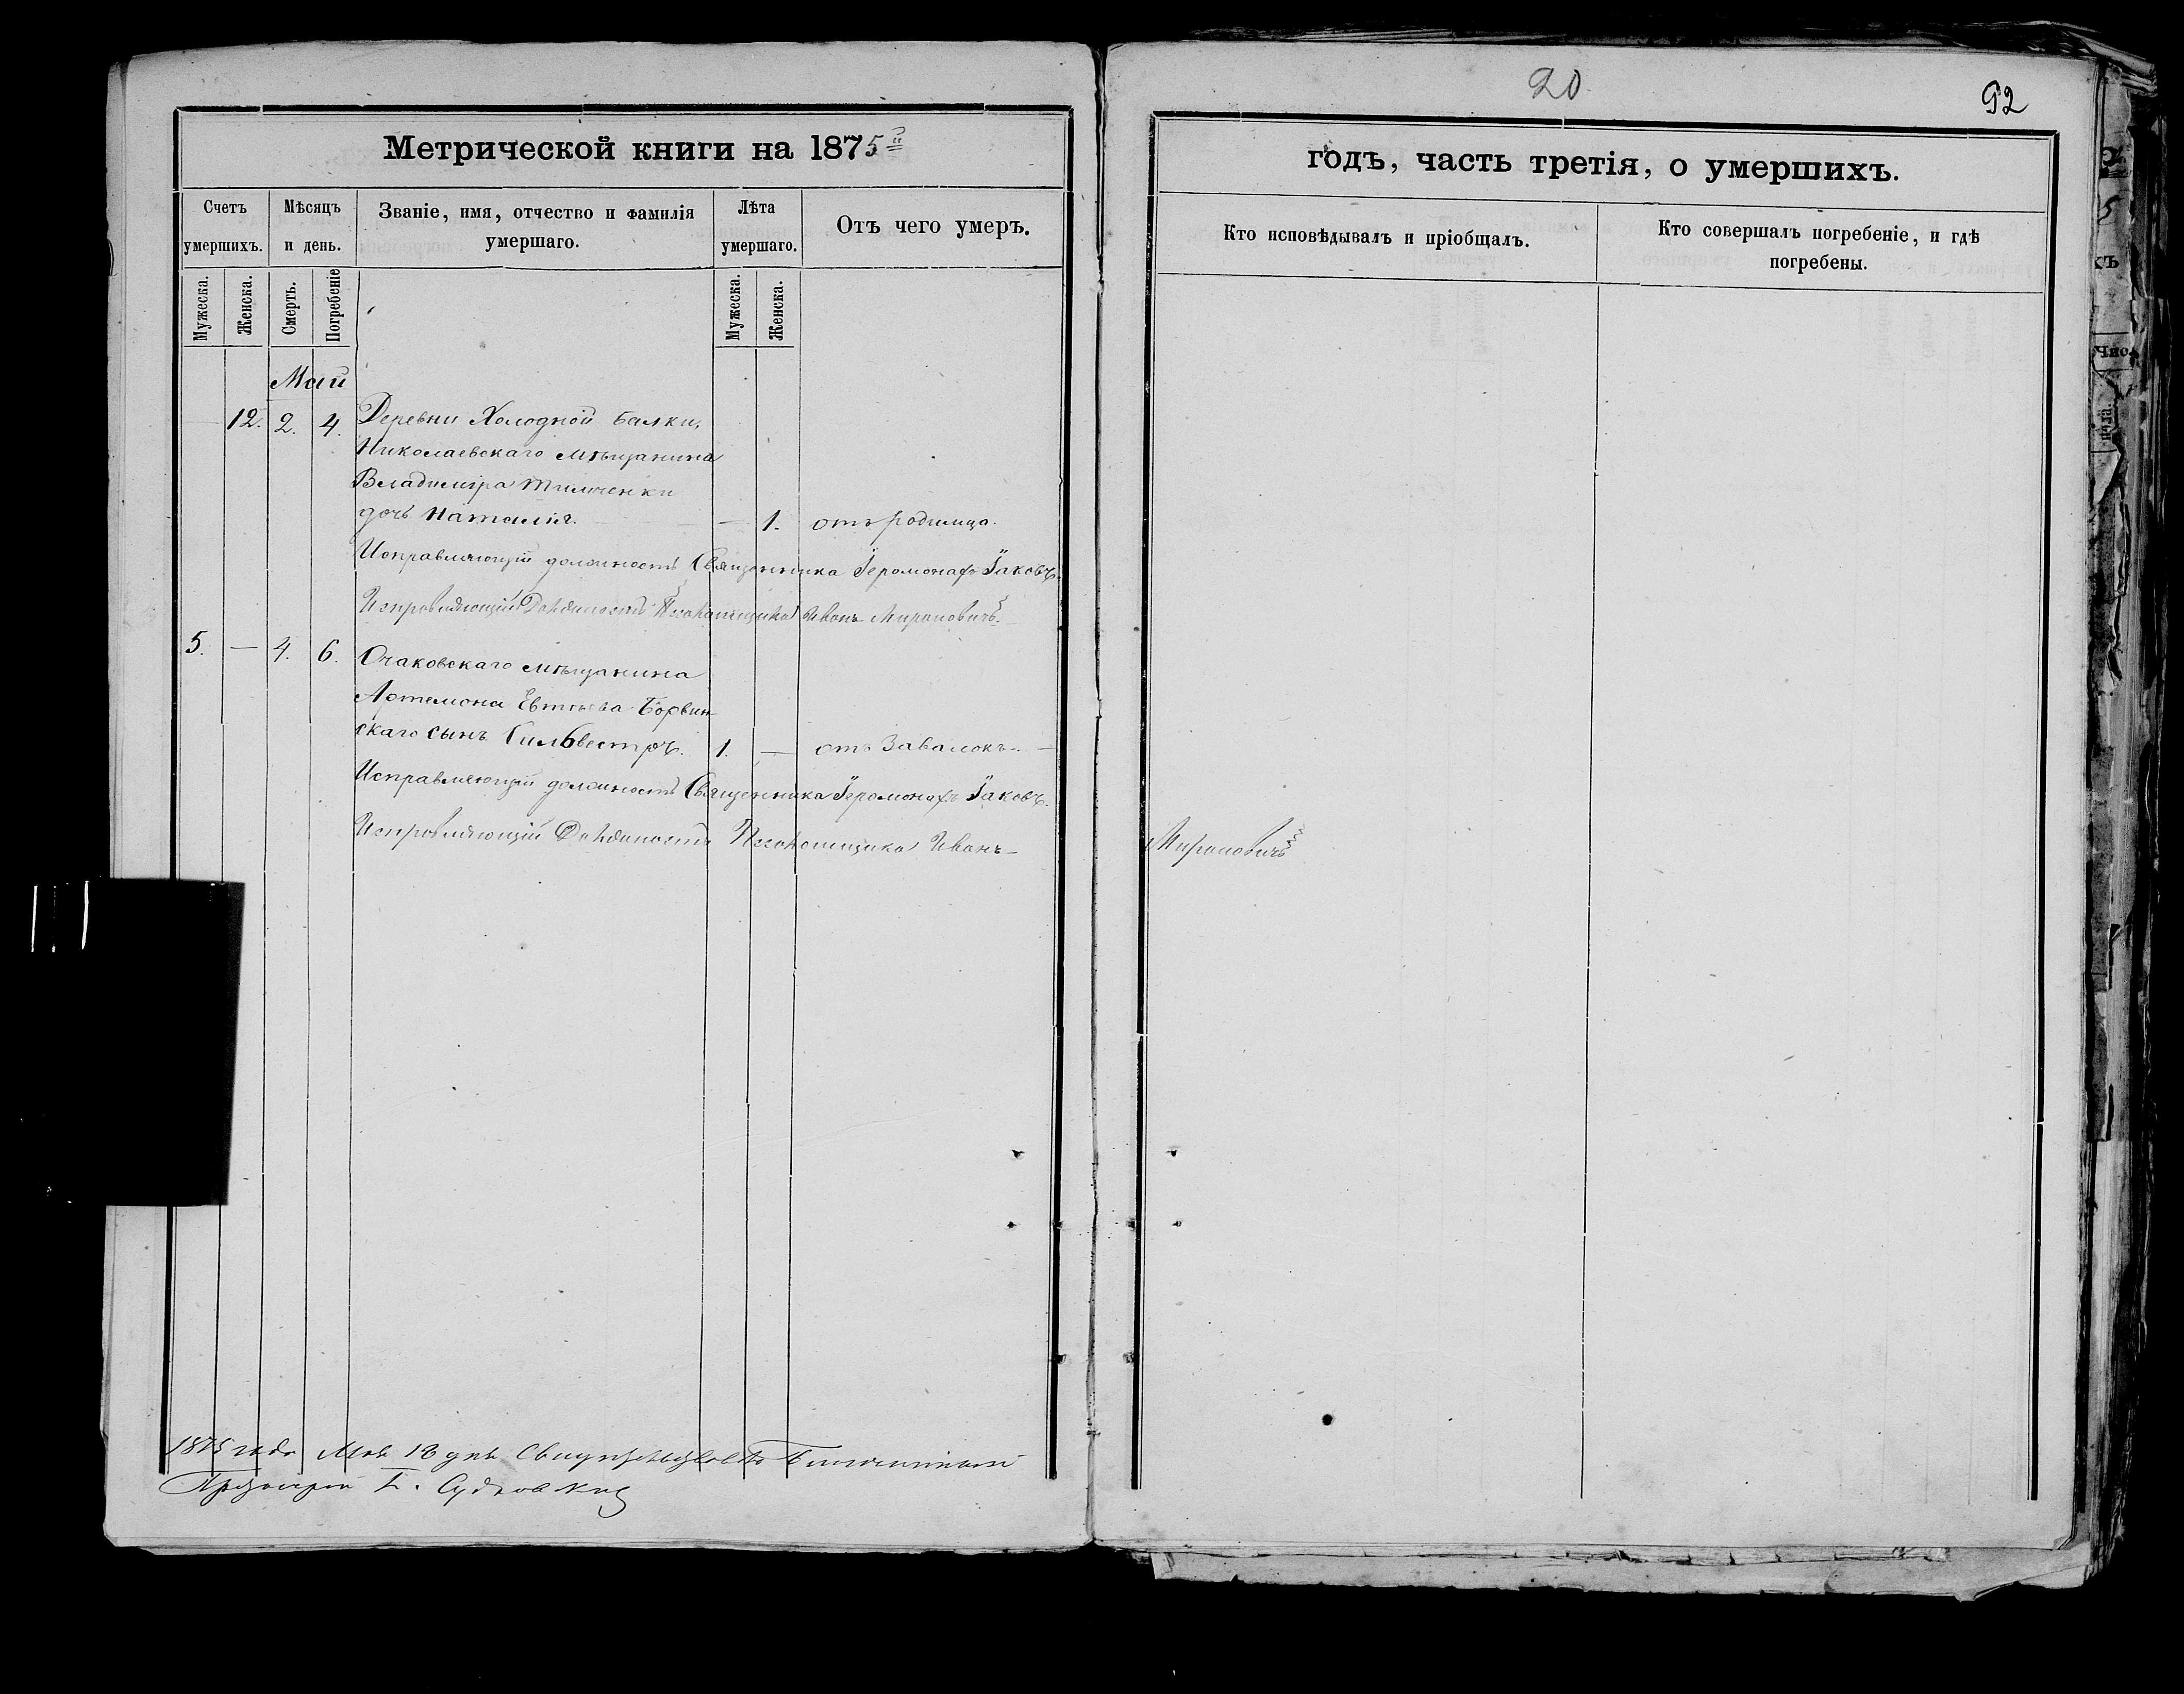 20
92
Метрической книги на 1875й
годъ, часть третія, о умершихъ.
Счетъ умершихъ.
Мѣсяцъ и день.
Званіе, имя, отчество и фамилія умершаго.
Лѣта умершаго.
Отъ чего умеръ.
Кто исповѣдывалъ и пріобщалъ.
Кто совершалъ погребеніе, и гдѣ погребены.
Мужеска.
Женска.
Смерть.
Погребеніе
Мужеска.
Женска.
Май
12. 2. 4. Деревни Холодной балки,
Николаевскаго мѣщанина
Владиміра Тимченки
дочь Наталія. — 1. отъ родимца.
Исправляющій должность Священника Іеромонахъ Іаковъ.
Исправляющій Должность Псаломщика Иванъ Мироновичъ
5. — 4. 6. Очаковскаго мѣщанина
Артемона Евтѣева Борвин-
скаго сынъ Сильвестръ. 1. — отъ Завалокъ. —
Исправляющій должность Священника Іеромонахъ Іаковъ.
Исправляющій Должность Псаломщика Иванъ Мироновичъ
1875 года Мая 13 дня Свидѣтельствовалъ Благочинный
Протоіерей